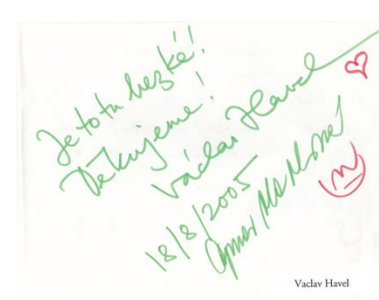 Je to tu hezké!
Děkujeme!
Václav Havel
18/8/2005
Vaclav Havel